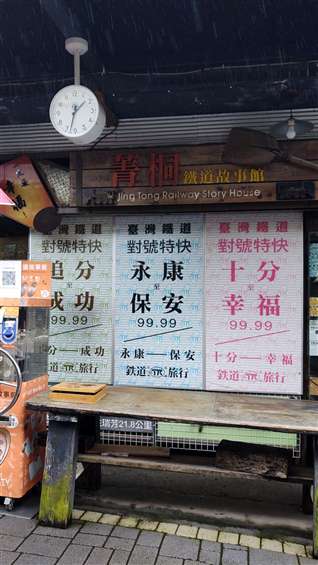 菁桐 鐵道故事館
Jing Tong Railway Story House
臺灣鐵道
對號特快
追分
至
成功
99.99
追分——成功
鉄道 旅行
臺灣鐵道
對號特快
永康
至
保安
99.99
永康——保安
鉄道 旅行
臺灣鐵道
對號特快
十分
至
幸福
99.99
十分——幸福
鉄道 旅行
瑞芳21.8公里